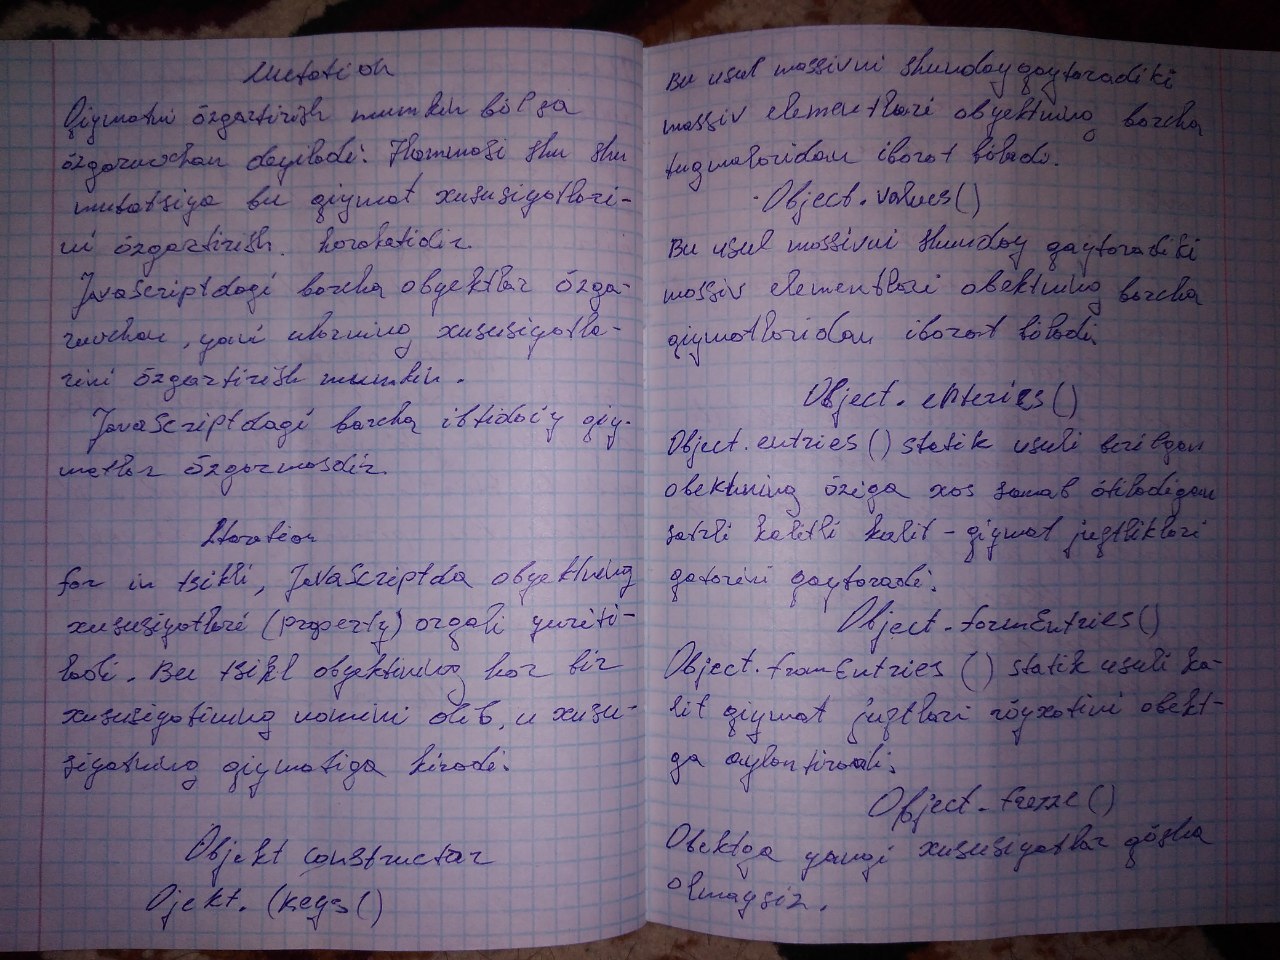 Mutation
Qiymatni özgartirish mumkin böl sa
özgaruvchan deyiladi. Hammasi shu shu
mutatsiya bu qiymat xususiyatlari-
ni özgartirish harakatidir.
JavaScriptdagi barcha obyektlar özga-
ruvchan, yani ularning xususiyatla-
rini özgartirish mumkin.
JavaScriptdagi barcha ibtidoiy qiy-
matlar özgarmasdir.
Iteration
for in tsikli, JavaScriptda obyektning
xususiyatlari (property) orqali yuriti-
ladi. Bu tsikl obyektning har bir
xususiyatining nomini olib, u xusu-
siyatning qiymatiga kiradi.
Objekt constructar
Ojekt. (keys()
Bu usul massivni shunday qaytaradiki
massiv elementlari obyektning barcha
tugmalaridan iborat böladi.
Object.values()
Bu usul massivni shunday qaytaradiki
massiv elementlari obektning barcha
qiymatlaridan iborat böladi
Object.enteries()
Object.entries() statik usuli berilgan
obektning öziga xos sanab ötiladigan
satrli kalitli kalit-qiymat juftliklari
qatorini qaytaradi.
Object.formEntries()
Object.fromEntries() statik usuli ka-
lit qiymat juftlari röyxatini obekt-
ga aylantiradi.
Object.frezze()
Obektga yangi xususiyatlar qösha
olmaysiz.